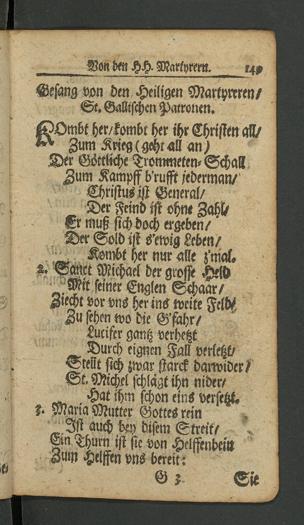 Von den H.H. Martyrern. 149
Gesang von den Heiligen Martyreren/
St. Gallischen Patronen.
KOmbt her/kombt her ihr Christen all/
Zum Krieg (geht all an)
Der Göttliche Trommeten-Schall
Zum Kampff b'rufft jederman/
Christus ist General/
Der Feind ist ohne Zahl/
Er muß sich doch ergeben/
Der Sold ist s'ewig Leben/
Kombt her nur alle z'mal.
2. Sanct Michael der grosse Held
Mit seiner Englen Schaar/
Ziecht vor vns her ins weite Feld/
Zu sehen wo die G'fahr/
Lucifer gantz verhetzt
Durch eignen Fall verletzt/
Stellt sich zwar starck darwider/
St. Michel schlägt ihn nider/
Hat ihm schon eins versetzt.
3. Maria Mutter Gottes rein
Ist auch bey disem Streit/
Ein Thurn ist sie von Helffenbein
Zum Helffen vns bereit:
G 3 Sie